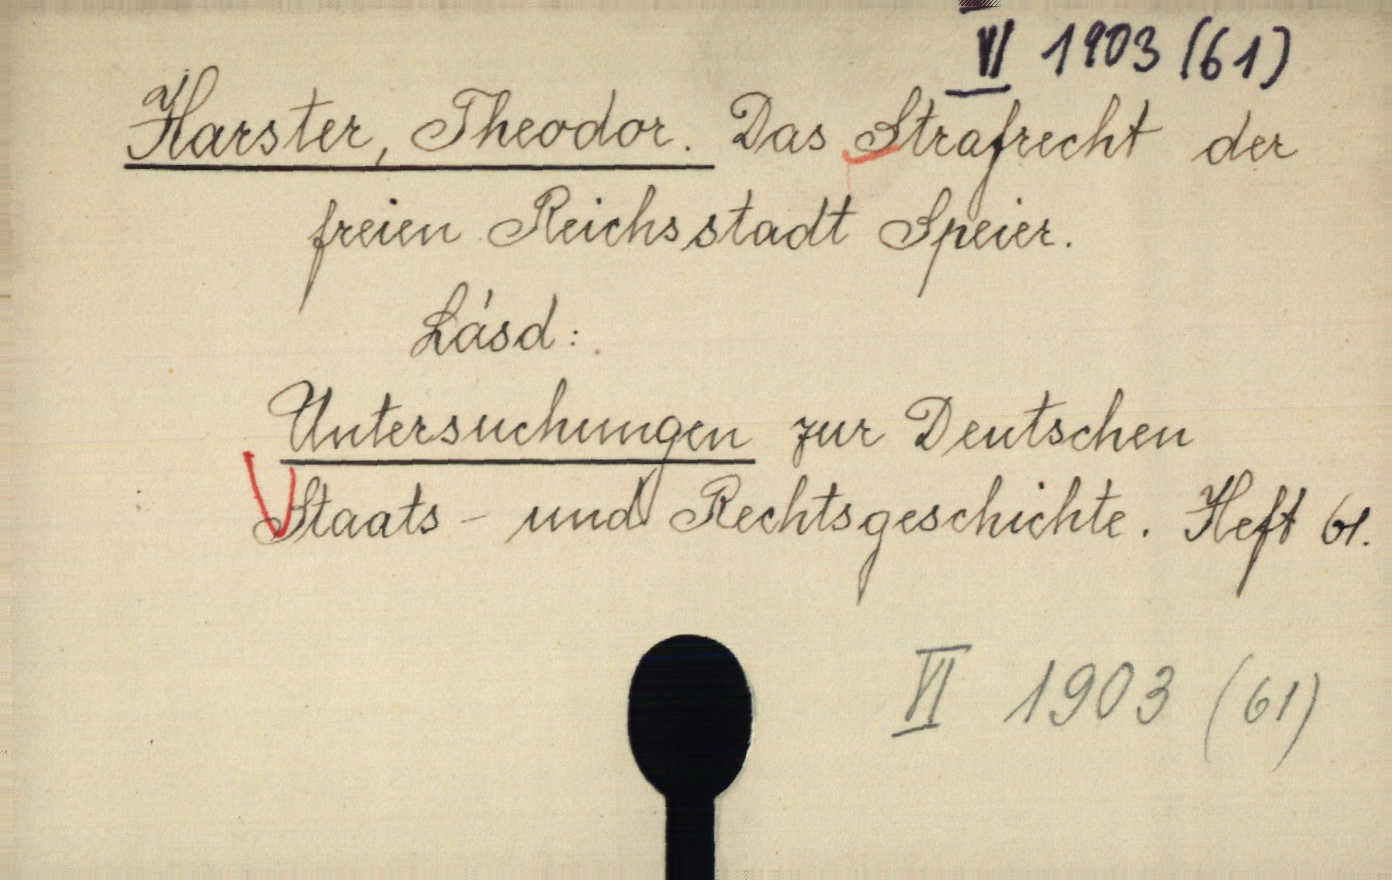 VI 1903 (61)
Harster, Theodor. Das Strafrecht der
freien Reichsstadt Speier.
Lásd:
Untersuchungen zur Deutschen
Staats- und Rechtsgeschichte. Heft 61.
VI 1903 (61)